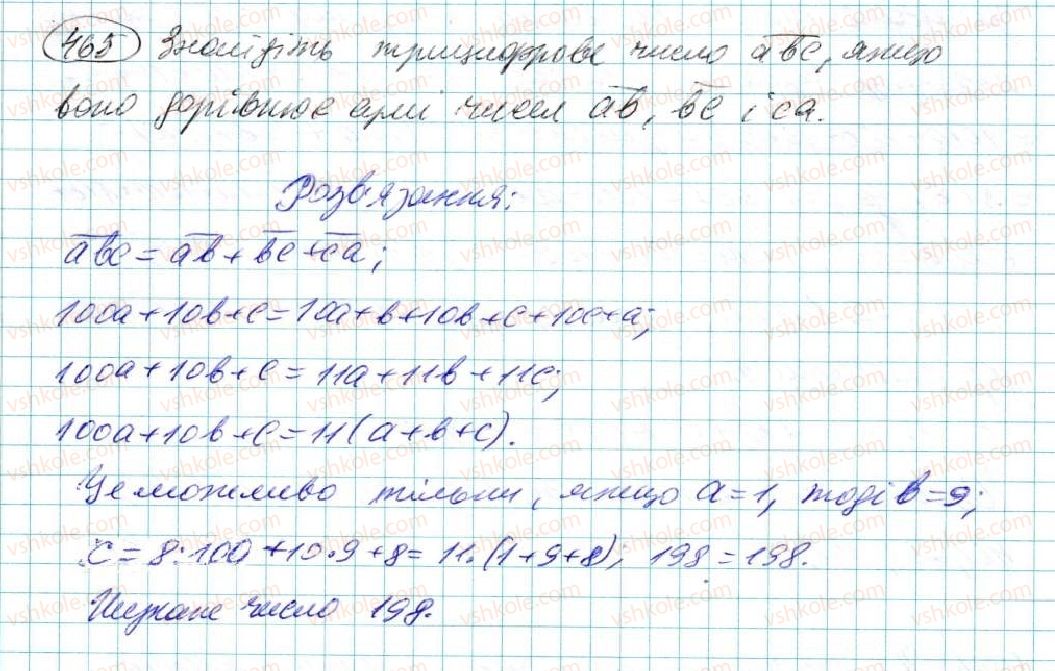 465 Знайдіть трицифрове число a̅b̅c̅, якщо
воно дорівнює сумі чисел a̅b̅, b̅c̅ і c̅a̅.
Розв'язання:
a̅b̅c̅ = a̅b̅ + b̅c̅ + c̅a̅;
100a+10b+c=10a+b+10b+c+10c+a;
100a+10b+c=11a+11b+11c;
100a+10b+c=11(a+b+c).
Це можливо тільки, якщо a=1, тоді b=9;
c=8: 100+10·9+8=11·(1+9+8); 198=198.
Шукане число 198.